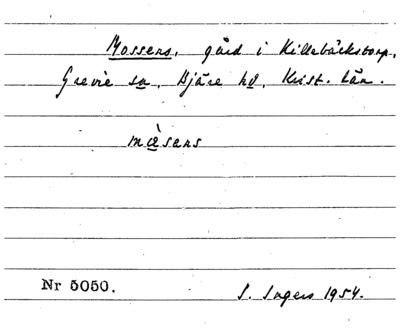 Mossens, gård i Killebäckstorp,
Grevie sn, Bjäre hd, Krist. län.
mɷ̀sans
Nr 5050.
I. Ingers 1954.